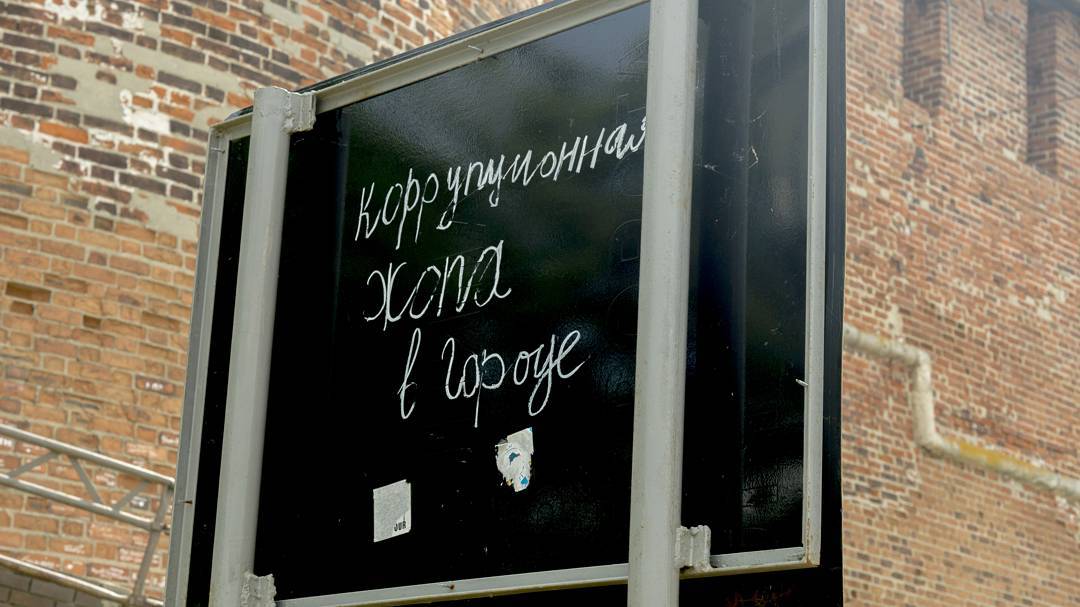 коррупционная
жопа
в городе
JUR